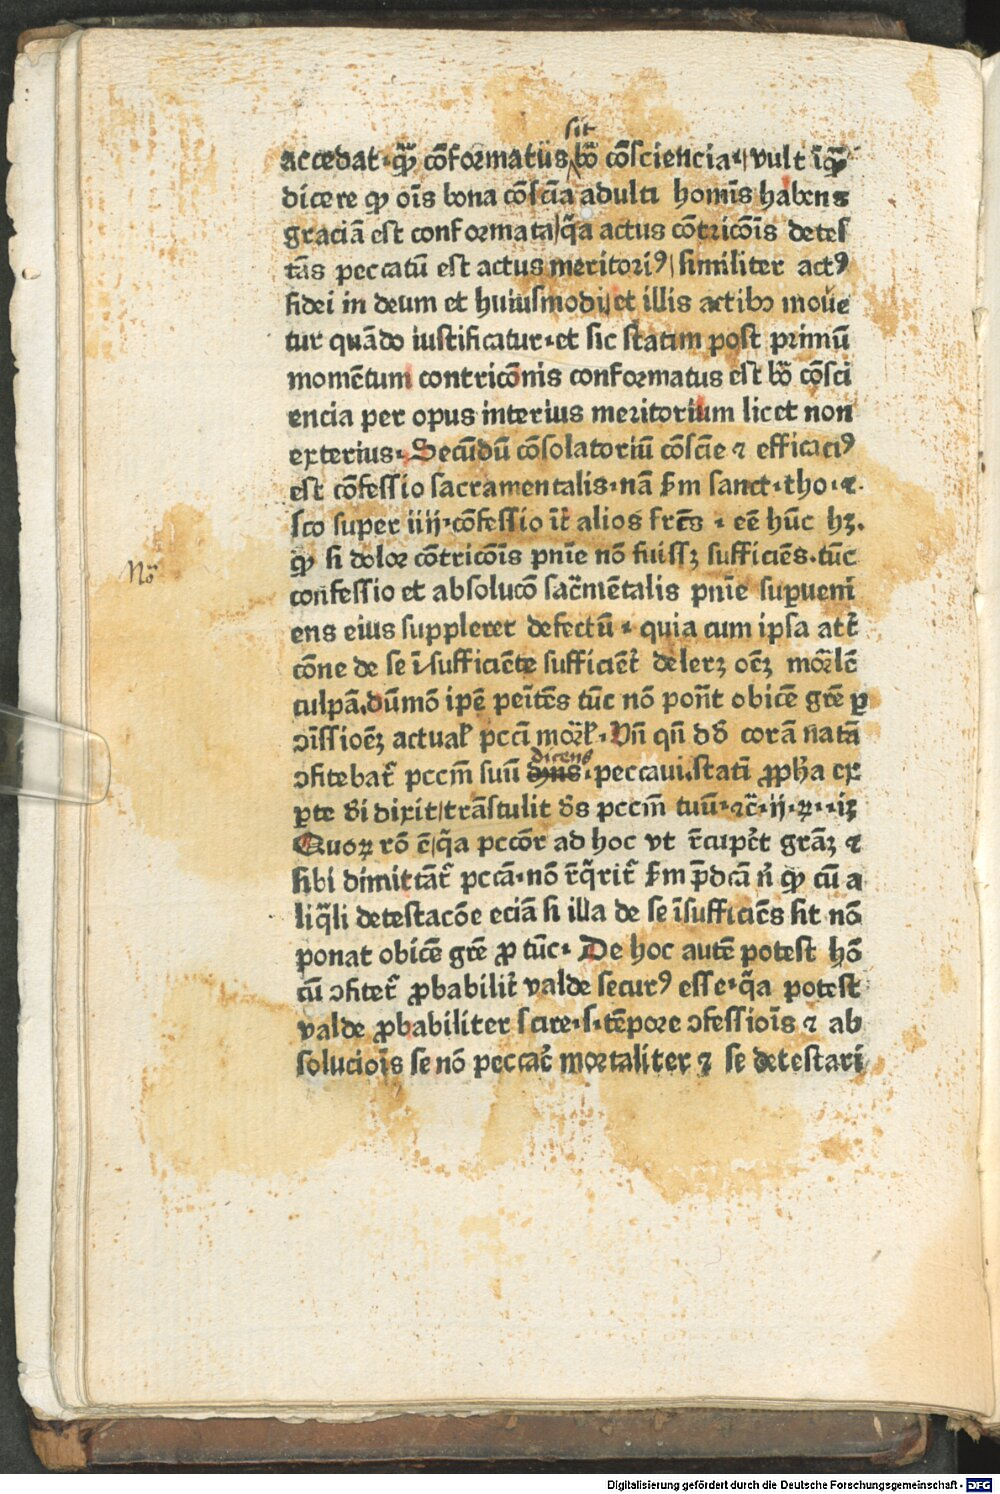 sit
accedat·qᷓ cōformatus bōͣ cōsciencia·/vult īqᷓ
dicere ꝙ oīs bona cōsciā adulti homīs habens
graciā est conformata/q̄a actus cōtricōīs detes
tās peccatū est actus meritoriꝰ/similiter actꝰ
fidei in deum et huiusmodi/et illis actibꝫ moue
tur quādo iustificatur·et sic statim post primū
momētum contricōnis conformatus est bōͣ cōsci
encia per opus interius meritorium licet non
exterius· Secūdū cōsolatoriū cōscīe ⁊ efficaciꝰ
est cōfessio sacramentalis·nā ẜm sanct·tho·⁊·
sco super iiij·cōfessio īt alios frc̄s · eē hūc hꝫ·
Nōͣ
ꝙ si dolor cōtricōīs pnīe nō fuissꝫ sufficiēs·tūc
confessio et absolucō sac̄mētalis pnīe suꝑueni
ens eius suppleret defectū · quia cum ipsa att̄
cōne de se īsufficiēte sufficiēt̄ delerꝫ oēꝫ mōrlē
culpā·dūmō ipē peītēs tūc nō pon̄t obicē grē ꝑ
ↄīssioēꝫ actualꝭ pccī mōrlꝭ· Vn̄ qn̄ dō corā natā
ↄfitebat᷑ pccm̄ suū
dicens
dn̄s· peccaui·statī ꝓpħa ex
ꝑte di dixit/trāstulit ds pccm̄ tuū·⁊c̄·ij·ꝶ··iꝫ
Quoꝝ rō ē/q̄a pccōr ad hoc vt r̄cupet grāꝫ ⁊
sibi dimittāt᷑ pccā·nō r̄q̄rit᷑ ẜm p̄dcā n̄ ꝙ cū a
liq̄li detestacōe eciā si illa de se īsufficiēs sit nō
ponat obicē grē ꝓ tūc· De hoc autē potest hō
cū ↄfitet᷑ ꝓbabilit̄ valde securꝰ esse·q̄a potest
valde ꝓbabiliter scire·s·tēpore ↄfessioīs ⁊ ab
solucioīs se nō peccac̄ mortaliter ⁊ se detestari
Digitalisierung gefördert durch die Deutsche Forschungsgemeinschaft - DFG